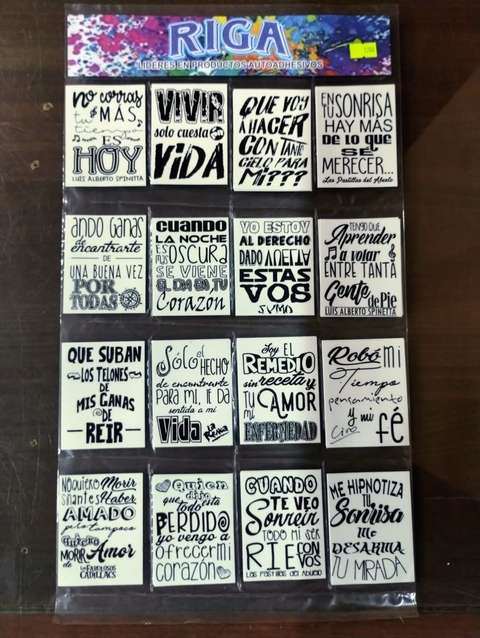 RIGA
LIDERES EN PRODUCTOS AUTOADHESIVOS
no corras
MÁS,
tu
tiempo
ES
HOY
LUIS ALBERTO SPINETTA
VIVIR
solo cuesta
VIDA
QUE VOY
A HACER
CON TANTO
CIELO PARA
MI???
EN TU SONRISA
HAY MAS
DE LO QUE
SE
MERECER...
Las Pastillas del Abuelo
ANDO GANAS
de
encontrarte
DE
UNA BUENA VEZ
POR
TODAS
CUANDO
LA NOCHE
MAS OSCURA
SE VIENE
EL DIA EN TU
Corazon
YO ESTOY
AL DERECHO
DADO VUELTA
ESTAS
VOS
SUMO
TENGO QUE
Aprender
a volar
ENTRE TANTA
Gente de Pie
LUIS ALBERTO SPINETTA
QUE SUBAN
LOS TELONES
DE
MIS GANAS
DE
REIR
Sólo el HECHO
de encontrarte
PARA MI, LE DA
sentido a mi
Vida
Soy EL
REMEDIO
sin receta y
TU AMOR
MI
ENFERMEDAD
Robó mi
Tiempo
pensamiento
y mi
fé
Ciro
NO QUIERO Morir
SIN ANTES Haber
AMADO
pero tampoco
QUIERO
MORIR DE Amor
LOS FABULOSOS
CADILLACS
Quien
dijo
que todo esta
PERDIDO
yo vengo a
ofrecer mi
corazón
CUANDO
TE VEO
Sonreir
TODO MI SER
RIE CON
VOS
LAS PASTILLAS DEL ABUELO
ME HIPNOTIZA
TU
Sonrisa
Me
DESARMA
TU MIRADA